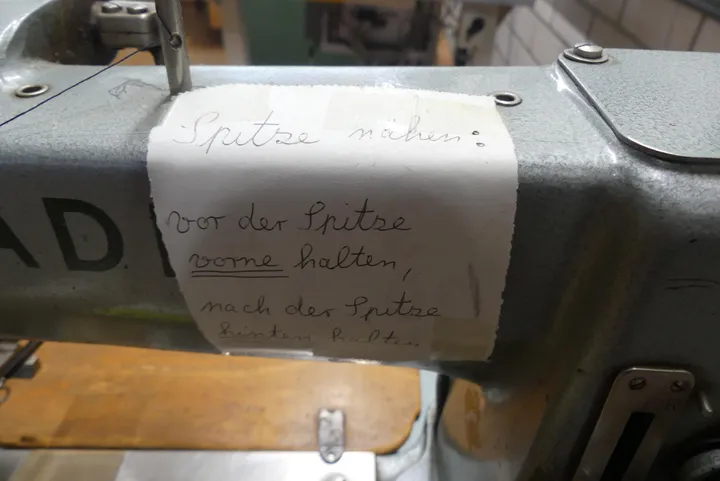 Spitze nähen:
vor der Spitze
vorne halten,
nach der Spitze
hinten halten.
AD